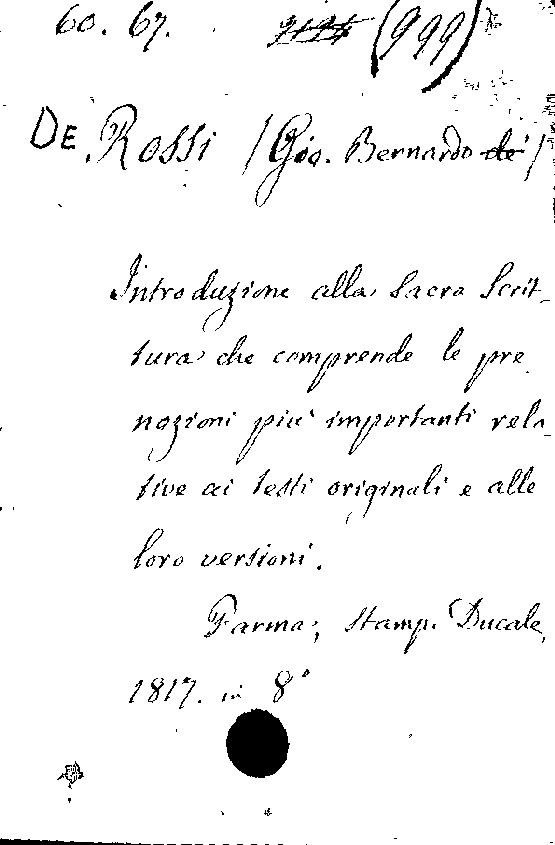 60. 67. (999)
DE Rossi / Gio. Bernardo de' /
Introduzione alla Sacra Scrit-
tura che comprende le pre
nozioni più importanti rela-
tive ai testi originali e alle
loro versioni.
Parma, Stamp. Ducale,
1817. in 8°